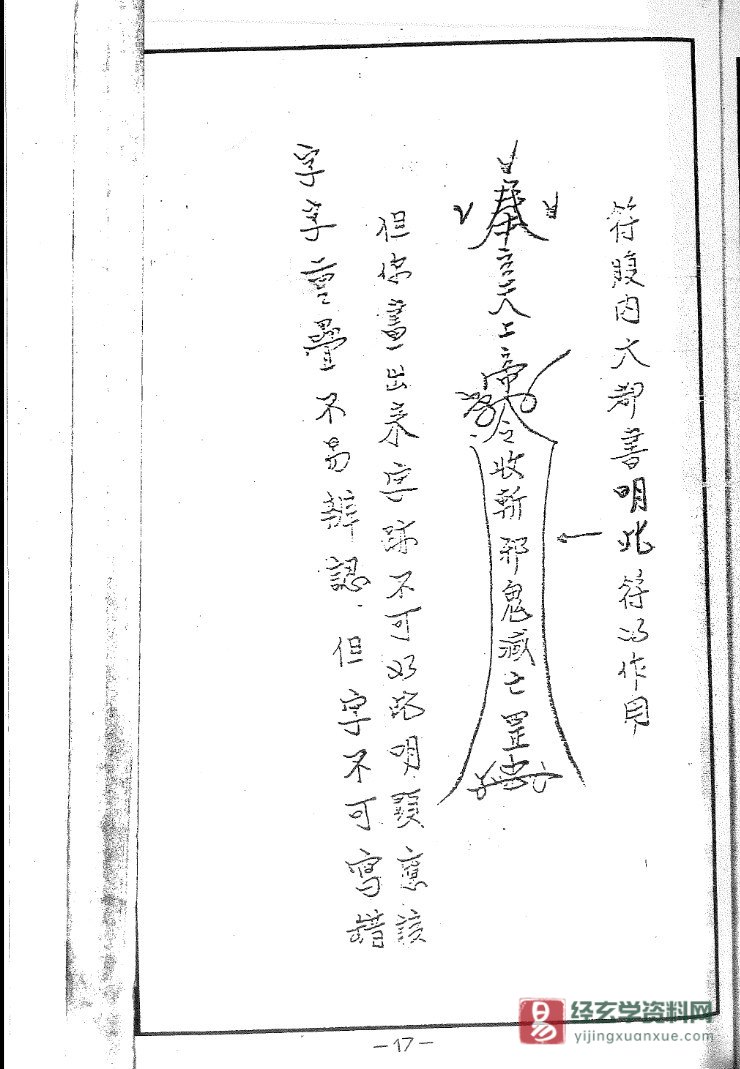 符腹内大都書明此符的作用
奉玄天上帝令收斬邪鬼滅亡罡
但你畫出來字跡不可如此明顯應該
字字重疊不易辨認.但字不可寫錯
-17-
易
经玄学资料网
yijingxuanxue.com